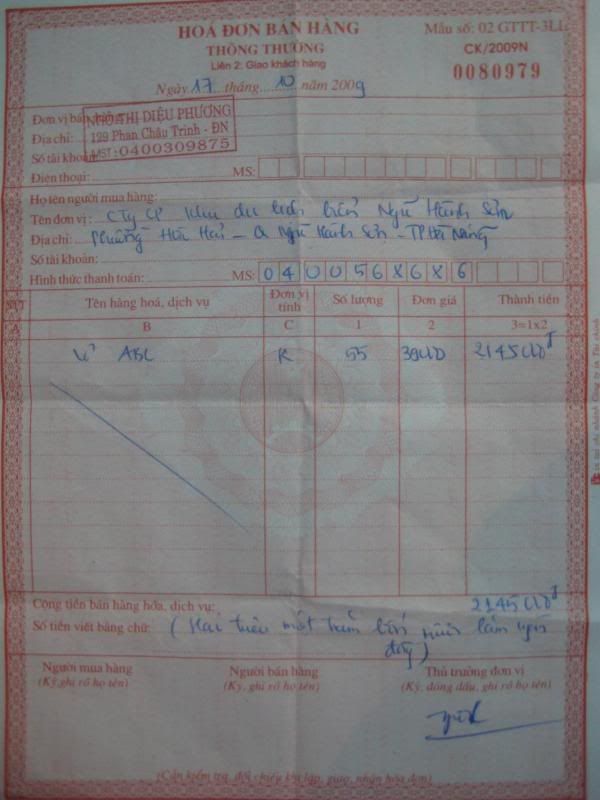 HOÁ ĐƠN BÁN HÀNG
THÔNG THƯỜNG
Liên 2: Giao khách hàng
Mẫu số: 02 GTTT-3LL
CK/2009N
0080979
Ngày 17 tháng 10 năm 2009
Đơn vị bán
THỊ DIỆU PHƯƠNG
Địa chỉ: 129 Phan Châu Trinh - ĐN
Số tài khoản:
MST: 0400309875
Điện thoại: MS:
Họ tên người mua hàng:
Tên đơn vị: CTy CP Khu du lịch biển Ngũ Hành Sơn
Địa chỉ: Phường Hoà Hải - Q Ngũ Hành Sơn - TP Đà Nẵng
Số tài khoản:
Hình thức thanh toán: MS: 040056
STT Tên hàng hoá, dịch vụ Đơn vị tính Số lượng Đơn giá Thành tiền
A B C 1 2 3=1x2
ABC 55
Cộng tiền bán hàng hóa, dịch vụ:
Số tiền viết bằng chữ: (Hai triệu một trăm bốn mươi lăm ngàn
đồng)
Người mua hàng Người bán hàng Thủ trưởng đơn vị
(Ký, ghi rõ họ tên) (Ký, ghi rõ họ tên) (Ký, đóng dấu, ghi rõ họ tên)
(Cần kiểm tra, đối chiếu khi lập, giao, nhận hóa đơn)